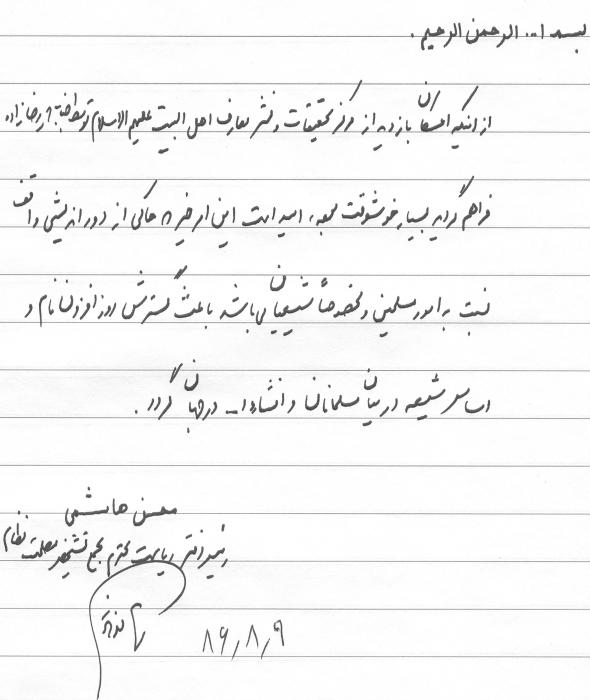 بسم ا... الرحمن الرحیم.
از اینکه امکان بازدید از مرکز تحقیقات و نشر معارف اهل البیت علیهم السلام توسط
فراهم گردید بسیار خوشوقت امید است این امر خیر حاکی از دور اندیشی واقف
نسبت به امور مسلمین و خصوصاً شیعیان می باشد باعث گسترش روز افزون نام و
اساس شیعه در میان مسلمانان و انشاءا... در جهان گردد.
محسن هاشمی
رئیس دفتر ریاست محترم مجمع تشخیص مصلحت نظام
۸۹/۸/۹